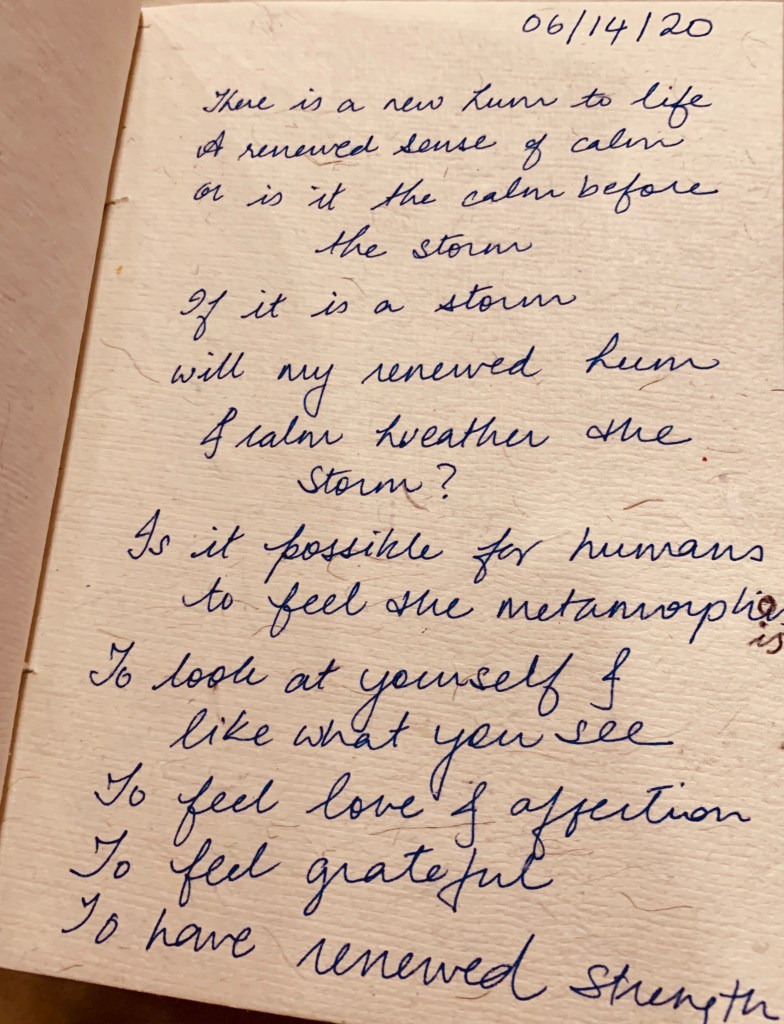 06/14/20
There is a new hum to life
A renewed sense of calm
or is it the calm before
the storm
If it is a storm
will my renewed hum
& calm weather the
storm?
Is it possible for humans
to feel the
To look at yourself &
like what you see
To feel love & affection
To feel grateful
To have renewed strength